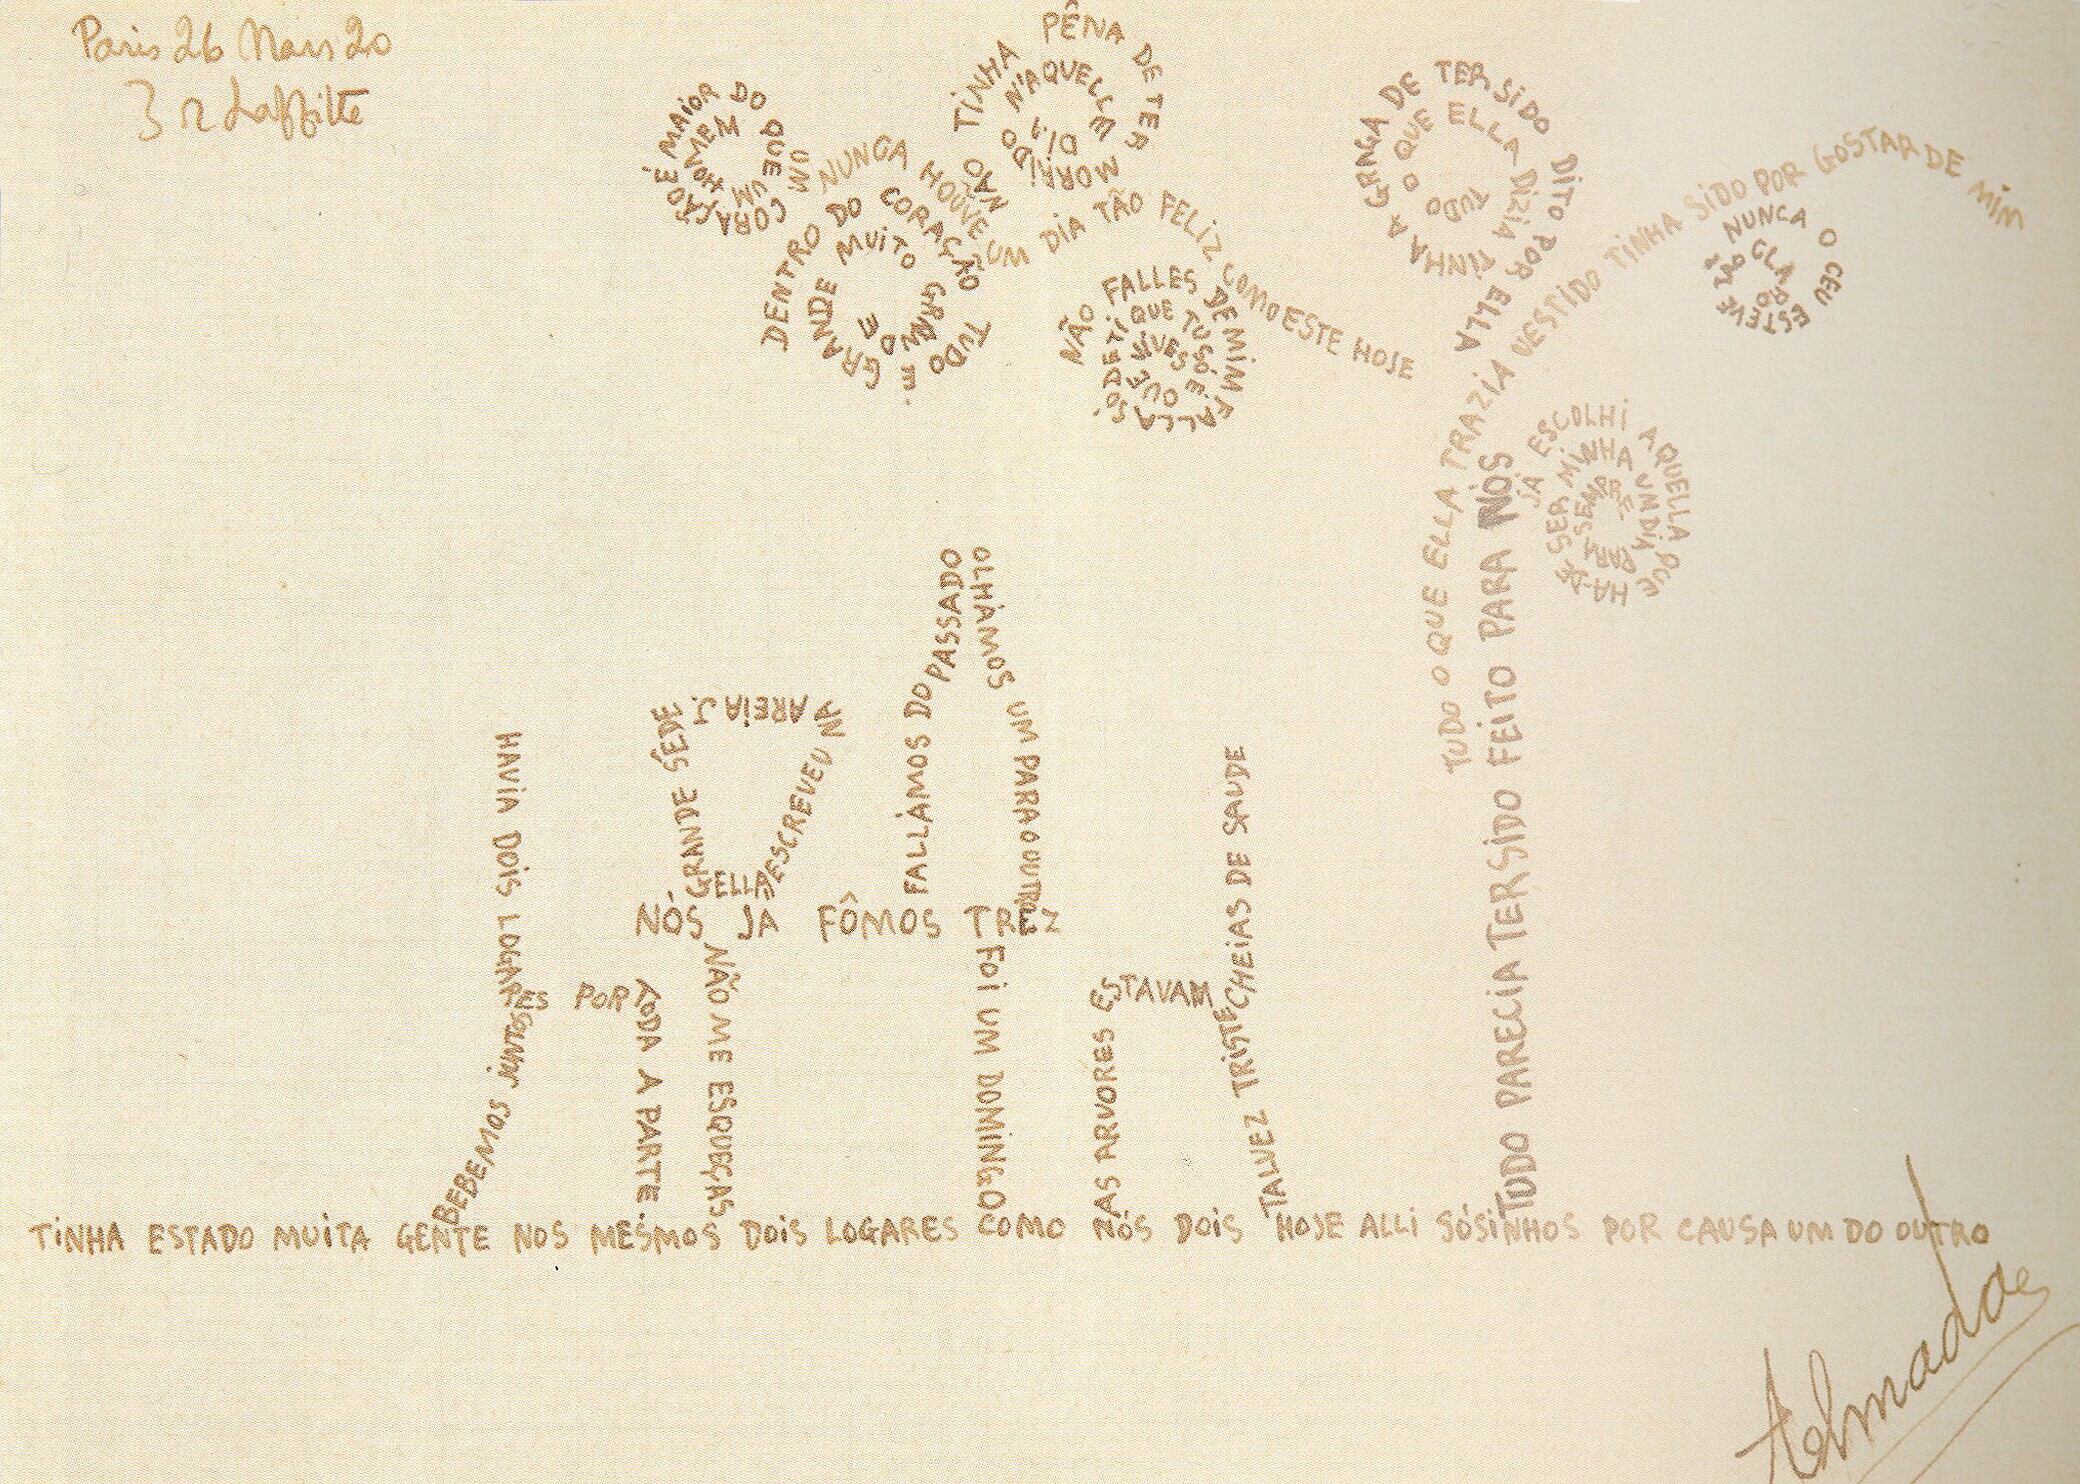 Paris 26 Mars 20
3 r Laffitte
UM CORAÇÃO É MAIOR DO QUE UM HOMEM
DENTRO DO CORAÇÃO TUDO É GRANDE MUITO GRANDE
NÃO TINHA PÊNA DE TER MORRIDO N'AQUELLE DIA
NUNCA HOUVE UM DIA TÃO FELIZ COMO ESTE HOJE
NÃO FALLES DE MIM FALLA SÓ DE TI QUE TUS É QUE VIVES
TUDO O QUE ELLA DIZIA TINHA A GRAÇA DE TER SIDO DITO POR ELLA
TUDO O QUE ELLA TRAZIA VESTIDO TINHA SIDO POR GOSTAR DE MIM
NUNCA O CEU ESTEVE TÃO CLARO
JÁ ESCOLHI AQUELLA QUE HA-DE SER MINHA UM DIA PARA SEMPRE
TUDO PARECIA TER SIDO FEITO PARA NÓS
HAVIA DOIS LOGARES POR TODA A PARTE
BEBEMOS JUNTOS
GRANDE SÊDE
ELLA ESCREVEU NA AREIA J.
NÓS JA FÔMOS TREZ
NÃO ME ESQUEÇAS
FALLÁMOS DO PASSADO
OLHÁMOS UM PARA O OUTRO
FOI UM DOMINGO
AS ARVORES ESTAVAM CHEIAS DE SAUDE
TALVEZ TRISTE
TINHA ESTADO MUITA GENTE NOS MESMOS DOIS LOGARES COMO NÓS DOIS HOJE ALLI SÓSINHOS POR CAUSA UM DO OUTRO
Almada